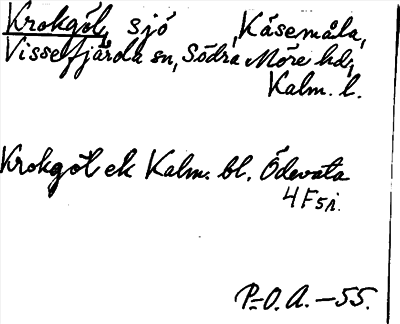 Krokgöl, sjö, Kåsemåla,
Vissefjärda sn, Södra Möre hd,
Kalm. l.
Krokgöl ek Kalm. bl. Ödevata
4 F 5 i.
P-O.A. - 55.